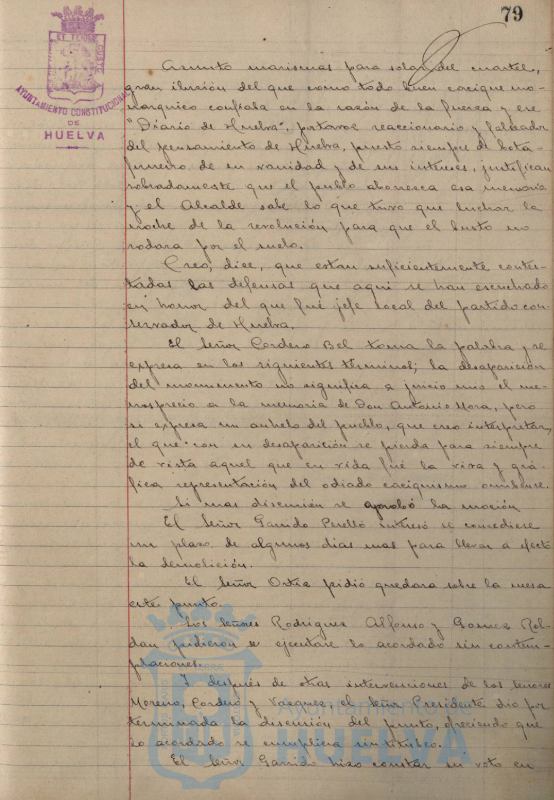 79
AYUNTAMIENTO CONSTITUCIONAL
DE
HUELVA
Asunto marismas para solar del cuartel,
gran ilusión del que como todo buen cacique mo-
nárquico confiaba en la razón de la fuerza y ese
"Diario de Huelva", portavoz reaccionario y falseador
del pensamiento de Huelva, puesto siempre de bota-
fumeiro de su vanidad y de sus intereses, justifican
sobradamente que el pueblo aborrezca esa memoria
y el Alcalde sabe lo que tuvo que luchar la
noche de la revolución para que el busto no
rodara por el suelo.
Creo, dice, que estan suficientemente contes-
tadas las defensas que aqui se han escuchado
en honor del que fué jefe local del partido con-
servador de Huelva.
El Señor Cordero Bel toma la palabra y se
expresa en los siguientes términos; la desaparición
del monumento no significa a juicio mio el me-
nosprecio a la memoria de Don Antonio Mora, pero
si expresa un anhelo del pueblo, que creo interpretar,
el que con su desaparición se pierda para siempre
de vista aquel que en vida fué la viva y grá-
fica representación del odiado caciquismo onubense.
Sin mas discusión se aprobó la moción
El Señor Garrido Perelló interesó se concediese
un plazo de algunos dias mas para llevar a efecto
la demolición.
El Señor Ortiz pidió quedara sobre la mesa
este punto.
Los Señores Rodriguez Alfonso y Gomez Rol-
dan pidieron se ejecutare lo acordado sin contem-
placiones.
Y después de otras intervenciones de los señores
Moreno, Cordero y Vazquez, el Señor Presidente dio por
terminada la discusión del punto, ofreciendo que
lo acordado se cumpliria sin titubeo.
El Señor Garrido hizo constar su voto en
Ayuntamiento
HUELVA